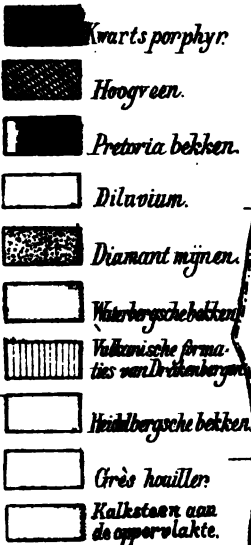 Kwarts porphyr.
Hoogveen.
Pretoria bekken.
Diluvium.
Diamant mijnen.
Waterbergsche bekken
Vulkanische forma-
ties van Drakenbergen
Heidelbergsche bekken.
Grès houiller.
Kalksteen aan
de oppervlakte.